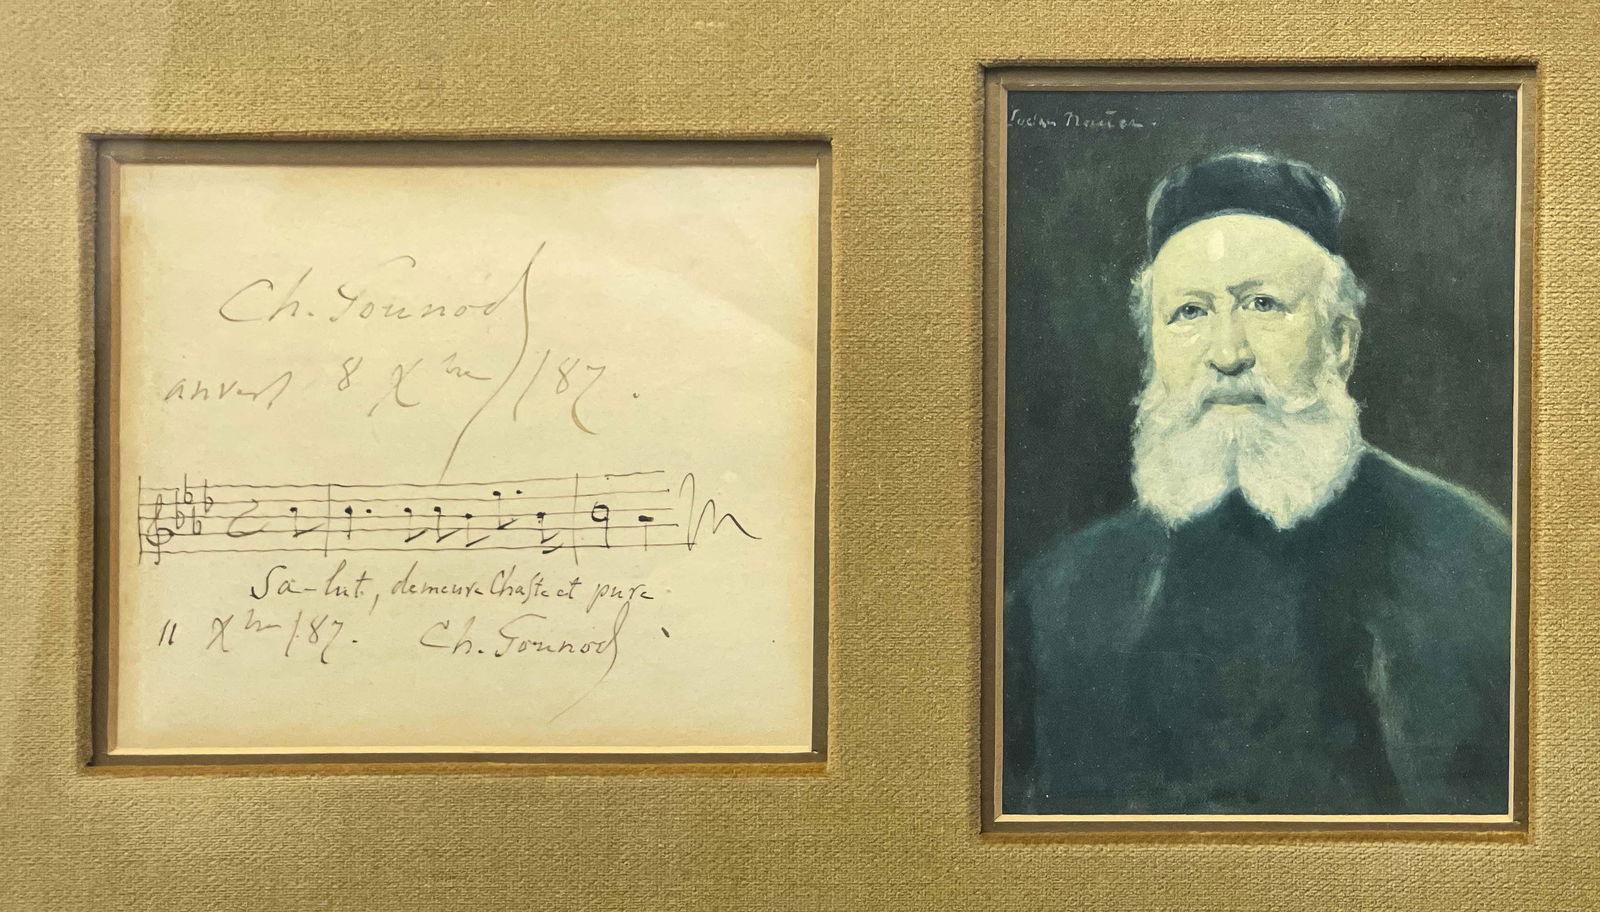 Ch. Gounod
anvers 8 Xbre /87.
Sa-lut, demeure Chaste et pure
11 Xbre /87. Ch. Gounod